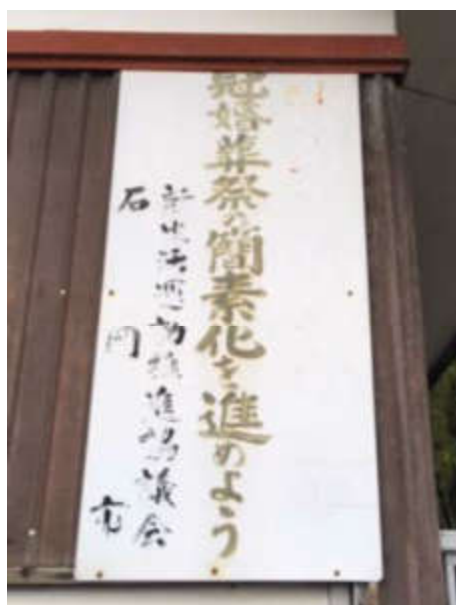 冠婚葬祭の簡素化を進めよう
新生活運動推進協議会
石岡市